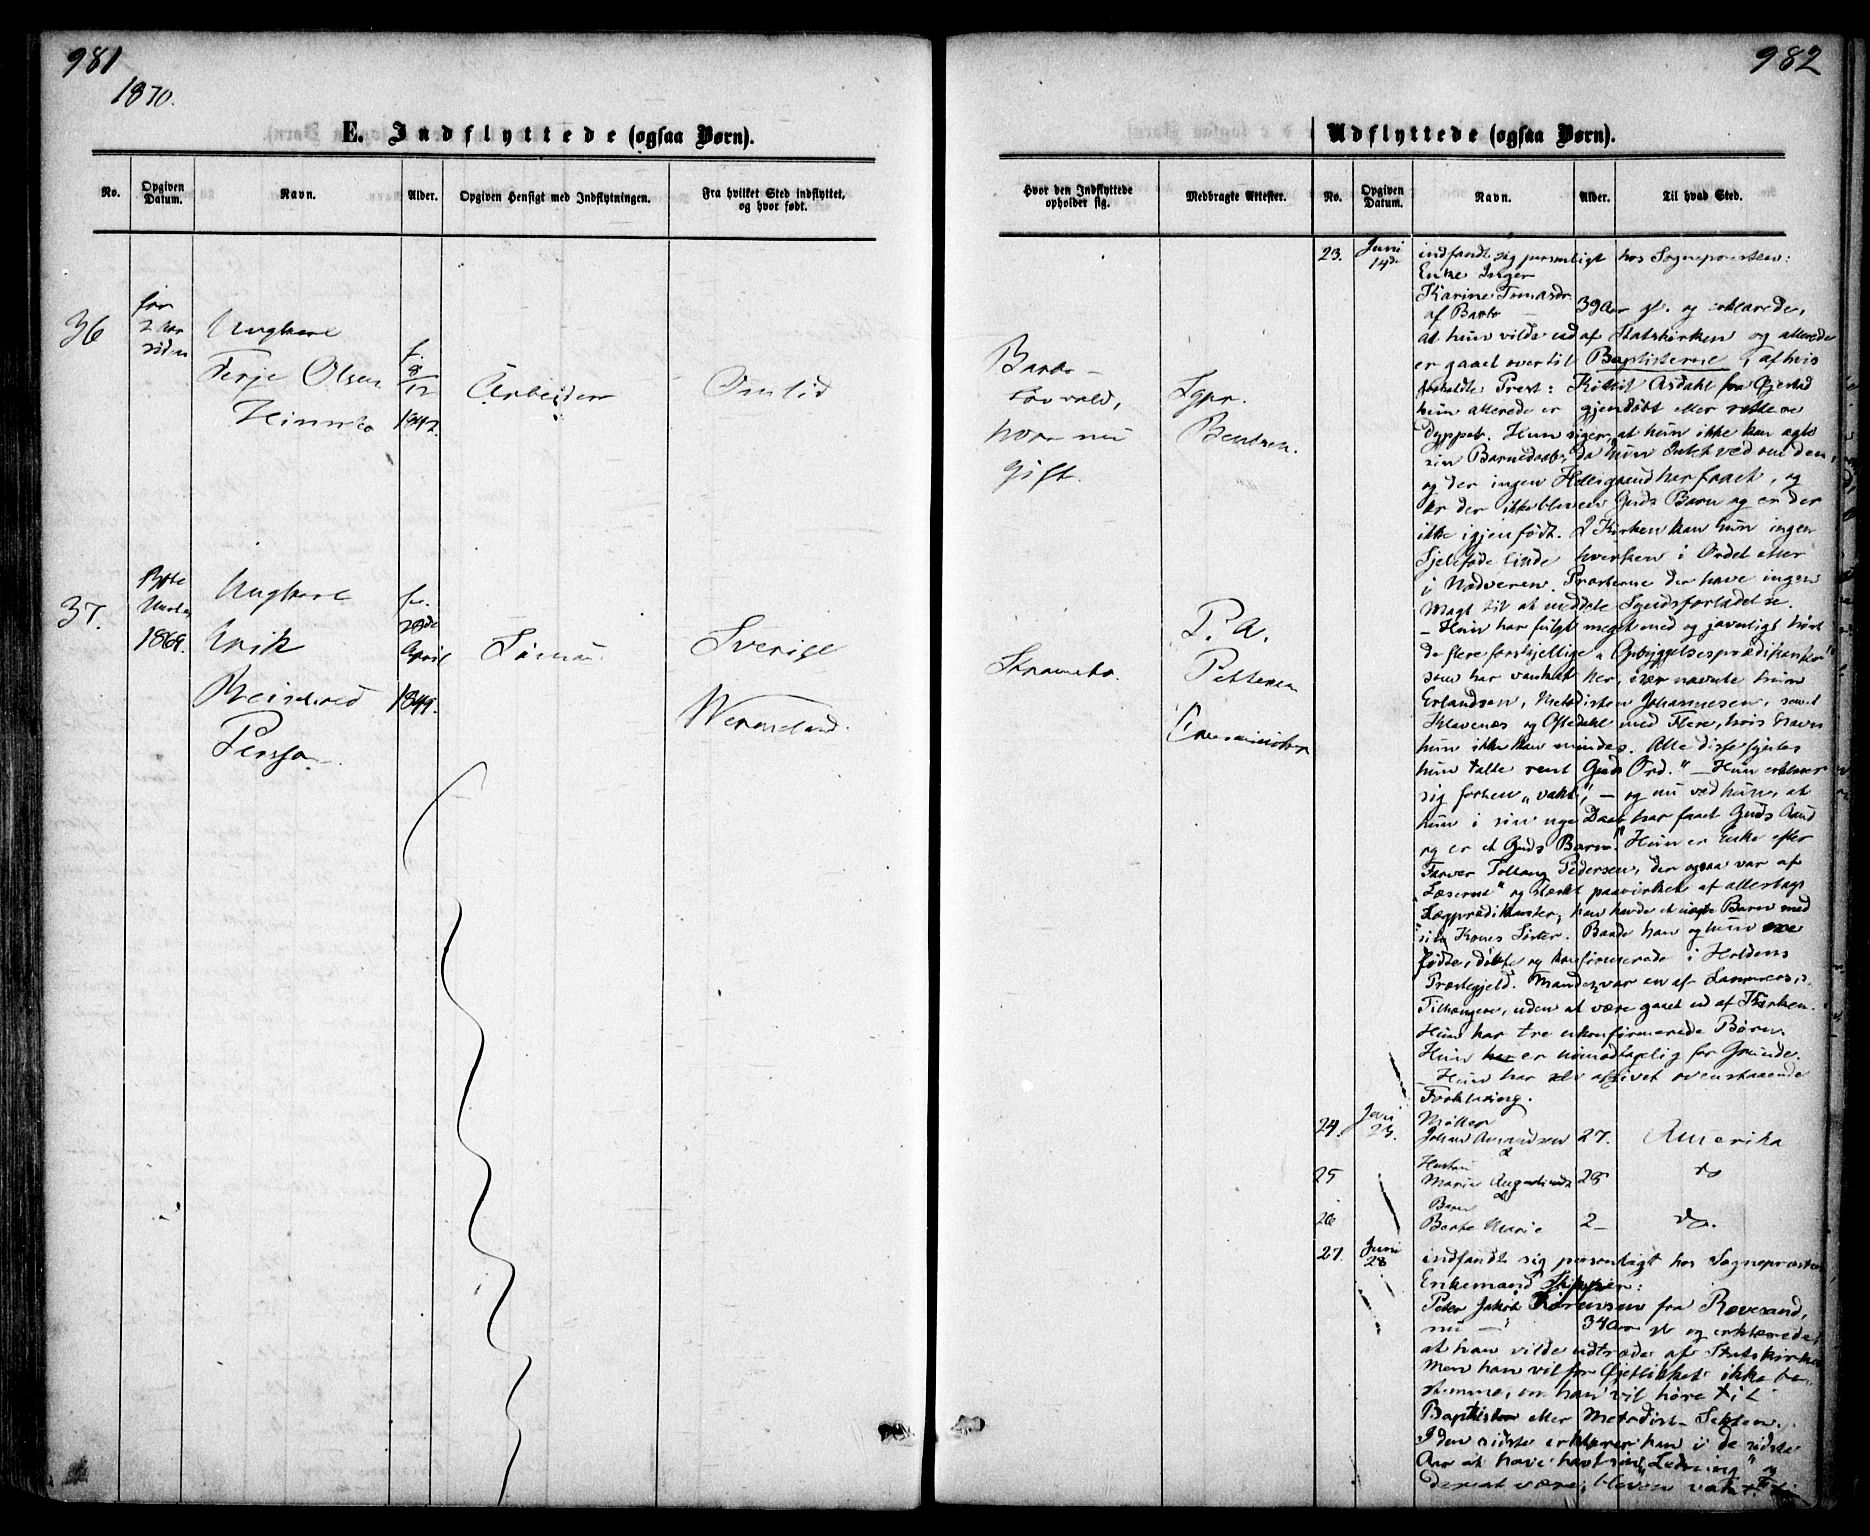 981
1870.
E. Indflyttede (ogsaa Børn).
No.
Opgiven Datum.
Navn.
Alder.
Opgiven Hensigt med Indflytningen.
Fra hvilket Sted indflyttet, og hvor født.
36
for
2 Aar
siden
Ungkarl
Terje Olsen
f.
8/12
1842.
Arbeider
Omlid
37.
1869.
Ungkarl
Erik
Persson
f.
29de
April
1849.
Sømand
Sverige
Wermeland.
982
Udflyttede (ogsaa Børn).
Hvor den Indflyttede opholder sig.
Medbragte Attester.
No.
Opgiven Datum.
Navn.
Alder.
Til hvad Sted.
Barbo
hvor nu
gift.
Sgpr.
Bentsen.
P. A.
Pettersen
23.
Juni
14de
indfandt sig personligt hos Sognepræsten:
Enke Inger
Karine Tomasdr.
af Barbo
39 Aar gl. og erklærede,
at hun vilde ud af Statskirken og allerede
er gaaet over til Baptisterne, af hvis
Prest: Asdahl fra Øjestad
hun allerede er gjendøbt eller rettere
dyppet. Hun siger, at hun ikke kan agte
sin Barnedaab, da hun Intet ved om den,
og der ingen Helligaand har faaet, og
er der ikke bleven Guds Barn og er der
ikke igjenfødt. I Kirken kan hun ingen
Sjeleføde finde hverken i Ordet eller
i Nadveren. Præsterne der have ingen
Magt til at meddele Syndsforladelse.
– Hun har fulgt meget med og jævnligt hørt
de flere forskjellige "Opbyggelsesprædikanter"
som har vanket her, især nævnte hun
Erlandsen, Metodisten Johannesen, samt
Klavenæs og Oftedahl med Flere, hvis Navn
hun ikke kan mindes. Alle disse syntes
hun talte rent Guds Ord." – Hun erklærer
sig forhen "vakt", – og nu ved hun, at
hun i sin nye Daab har faaet Guds Aand
og er et Guds Barn. Hun er Enke efter
Farver Pedersen, der ogsaa var af
"Læserne" og stærkt paavirket af alleslags
Lægprædikanter; han havde et uægte Barn med
sin Kones Søster. Baade han og hun ere
fødte, døbte og konfirmerede i Holdens
Præstegjeld. Manden var en af Lammers's
Tilhængere, uden at være gaaet ud af Kirken.
Hun har tre ukonfirmerede Børn.
Hun er uimodtagelig for Grunde.
– Hun har selv afgivet ovenstaaende
Forklaring.
24.
Juni
23.
Møller
Johan Amundsen
27.
Amerika
25
Hustru
Marie
28
do
26
Barn
Berte Marie
2
do.
27.
Juni
28
indfandt sig personligt hos Sognepræsten
Enkemand Skipper:
Peter Jakob Sørensen fra Revesand,
nu
34 Aar gl og erklærede
at han vilde udtræde af Statskirken
Men han vil for Øjeblikket ikke be-
stemme, om han vil høre til
Baptister eller Metodist-Sekten.
Iden sidste erklærer han i de sidste
Aar at have havt sin "Ledning" og
derved være bleven vakt.